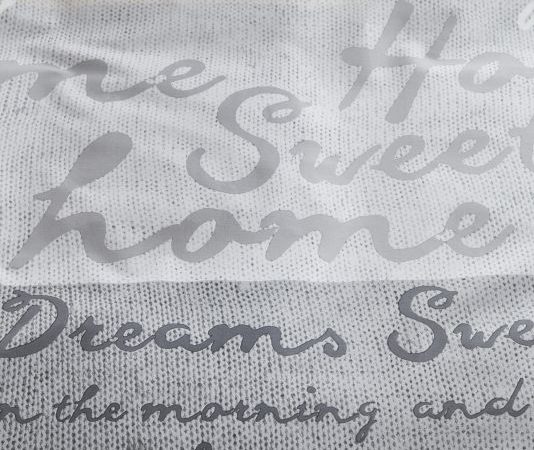 me Ho
Sweet
home
Dreams Swe
n the morning and